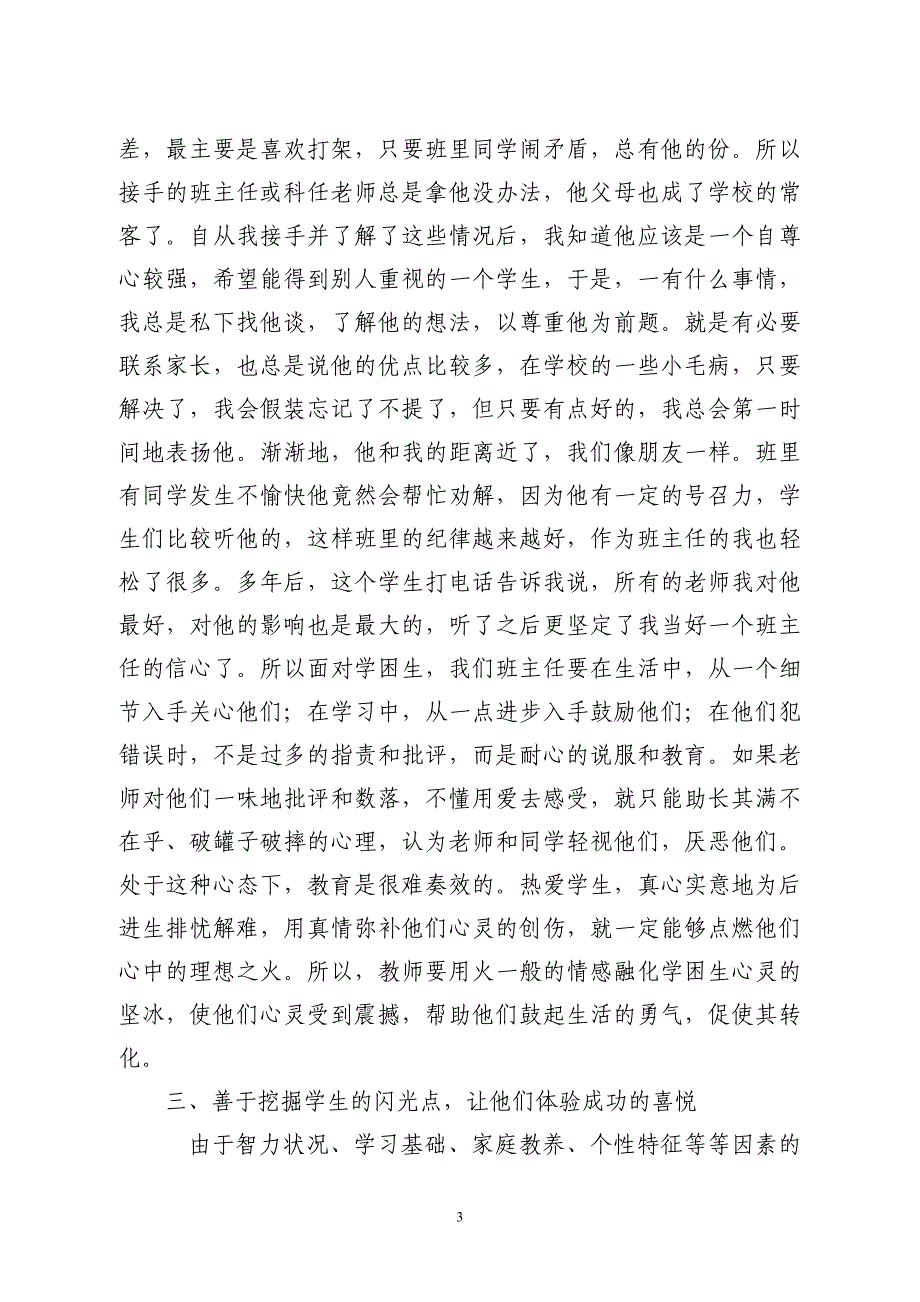 差，最主要是喜欢打架，只要班里同学闹矛盾，总有他的份。所以
接手的班主任或科任老师总是拿他没办法，他父母也成了学校的常
客了。自从我接手并了解了这些情况后，我知道他应该是一个自尊
心较强，希望能得到别人重视的一个学生，于是，一有什么事情，
我总是私下找他谈，了解他的想法，以尊重他为前题。就是有必要
联系家长，也总是说他的优点比较多，在学校的一些小毛病，只要
解决了，我会假装忘记了不提了，但只要有点好的，我总会第一时
间地表扬他。渐渐地，他和我的距离近了，我们像朋友一样。班里
有同学发生不愉快他竟然会帮忙劝解，因为他有一定的号召力，学
生们比较听他的，这样班里的纪律越来越好，作为班主任的我也轻
松了很多。多年后，这个学生打电话告诉我说，所有的老师我对他
最好，对他的影响也是最大的，听了之后更坚定了我当好一个班主
任的信心了。所以面对学困生，我们班主任要在生活中，从一个细
节入手关心他们；在学习中，从一点进步入手鼓励他们；在他们犯
错误时，不是过多的指责和批评，而是耐心的说服和教育。如果老
师对他们一味地批评和数落，不懂用爱去感受，就只能助长其满不
在乎、破罐子破摔的心理，认为老师和同学轻视他们，厌恶他们。
处于这种心态下，教育是很难奏效的。热爱学生，真心实意地为后
进生排忧解难，用真情弥补他们心灵的创伤，就一定能够点燃他们
心中的理想之火。所以，教师要用火一般的情感融化学困生心灵的
坚冰，使他们心灵受到震撼，帮助他们鼓起生活的勇气，促使其转
化。
三、善于挖掘学生的闪光点，让他们体验成功的喜悦
由于智力状况、学习基础、家庭教养、个性特征等等因素的
3